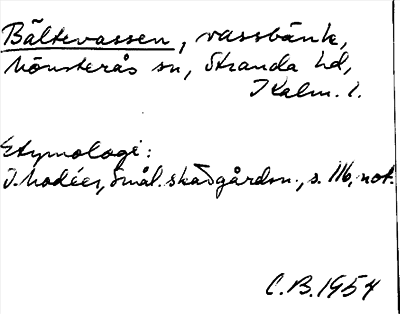 Bältevassen, vassbänk,
Mönsterås sn, Stranda hd,
Kalm. l.
Etymologi:
I. Modéer, Smål. skärgårdsn., s. 116, not.
C.B. 1954